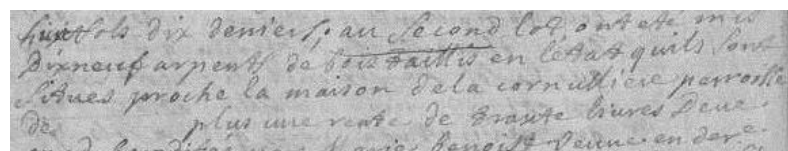 huit sols dix deniers, au second lot, ont eté mis
Dixneuf arpents de bois taillis en l'état quils sont
Situes proche la maison dela cornulliere parroisse
de plus une rente de trante livres deue